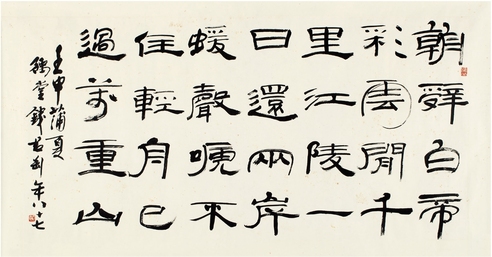 朝辭白帝
彩雲閒千
里江陵一
日還兩岸
蝯聲嗁不
住輕舟已
過萬重山
壬申蒲夏
豫堂錢君匋年八十七